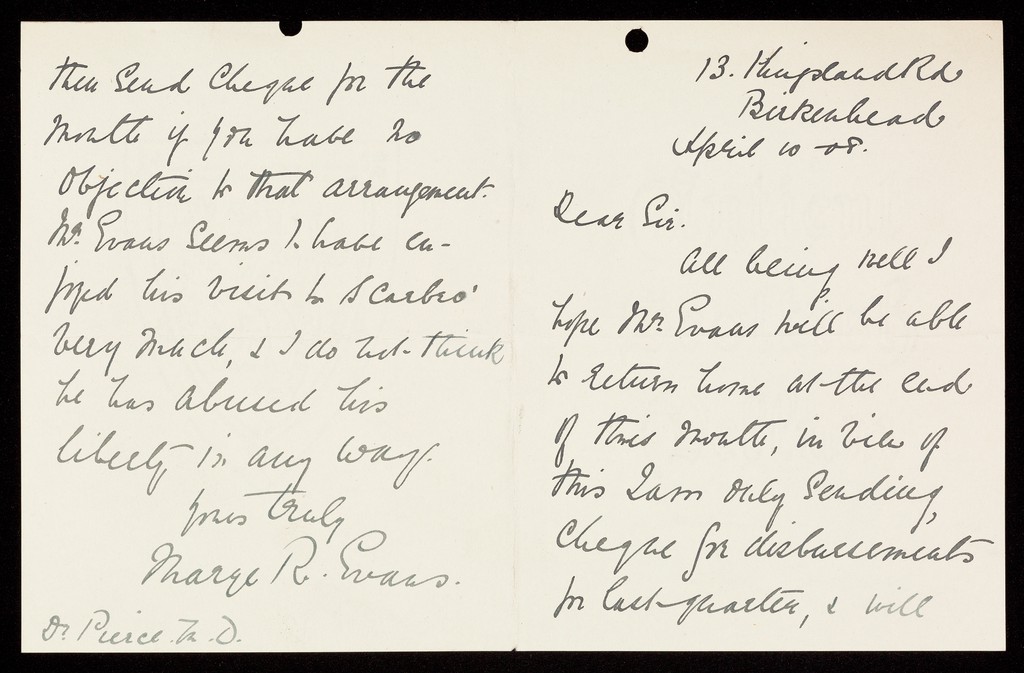 13. Kingsland Rd
Birkenhead
April 10 - 08.
Dear Sir.
All being well I
hope Mr. Evans will be able
to return home at the end
of this month, in view of
this I am only sending,
cheque for disbursements
for last quarter, & will
then send cheque for the
month if you have no
objection to that arrangement.
Mr. Evans seems to have en-
joyed his visit to Scarbro'
very much, & I do not think
he has abused his
liberty in any way.
yours truly
Marge R. Evans.
Dr. Pierce. M. D.